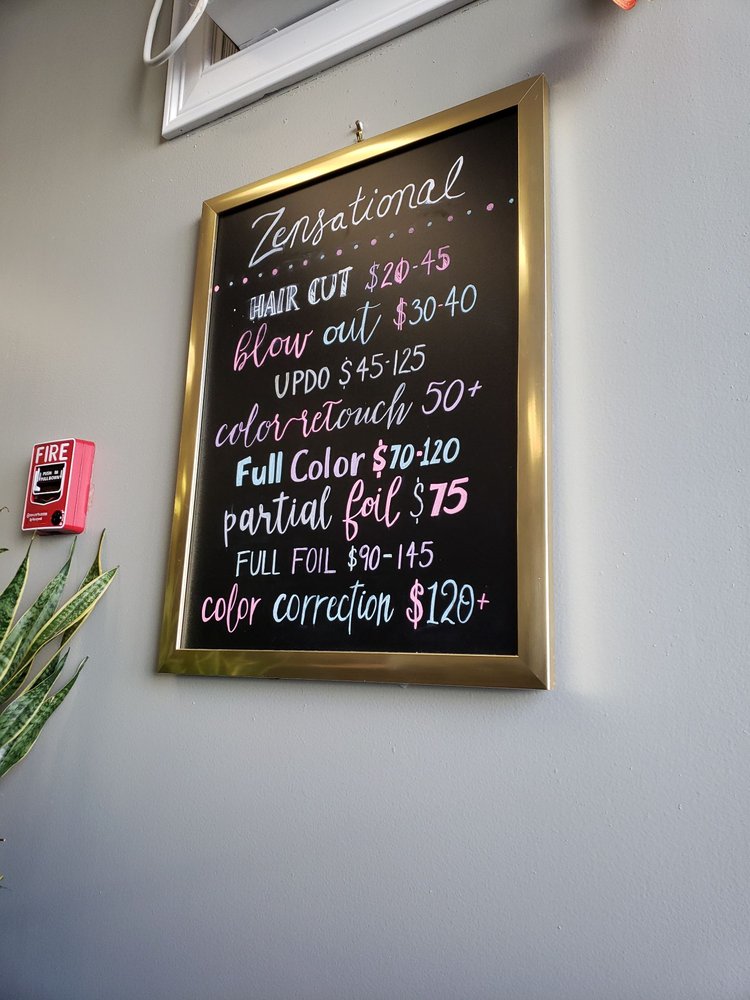 Zensational
HAIR CUT $20-45
blow out $30-40
UPDO $45-125
color retouch 50+
Full Color $70-120
partial foil $75
FULL FOIL $90-145
color correction $120+
FIRE
PUSH IN
PULL DOWN